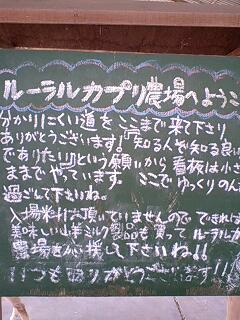 ルーラルカプリ農場へようこ
分かりにくい道をここまで来て下さり
ありがとうございます!『知る人ぞ知る良い
でありたい』という願いから看板は小さ
ままでやっています。ここでゆっくりのん
過ごして下さいね。
入場料は頂いていませんので できれば
美味しい山羊ミルク製品を買ってルーラルカ
農場を応援して下さいね!!
いつもありがとうございます!!